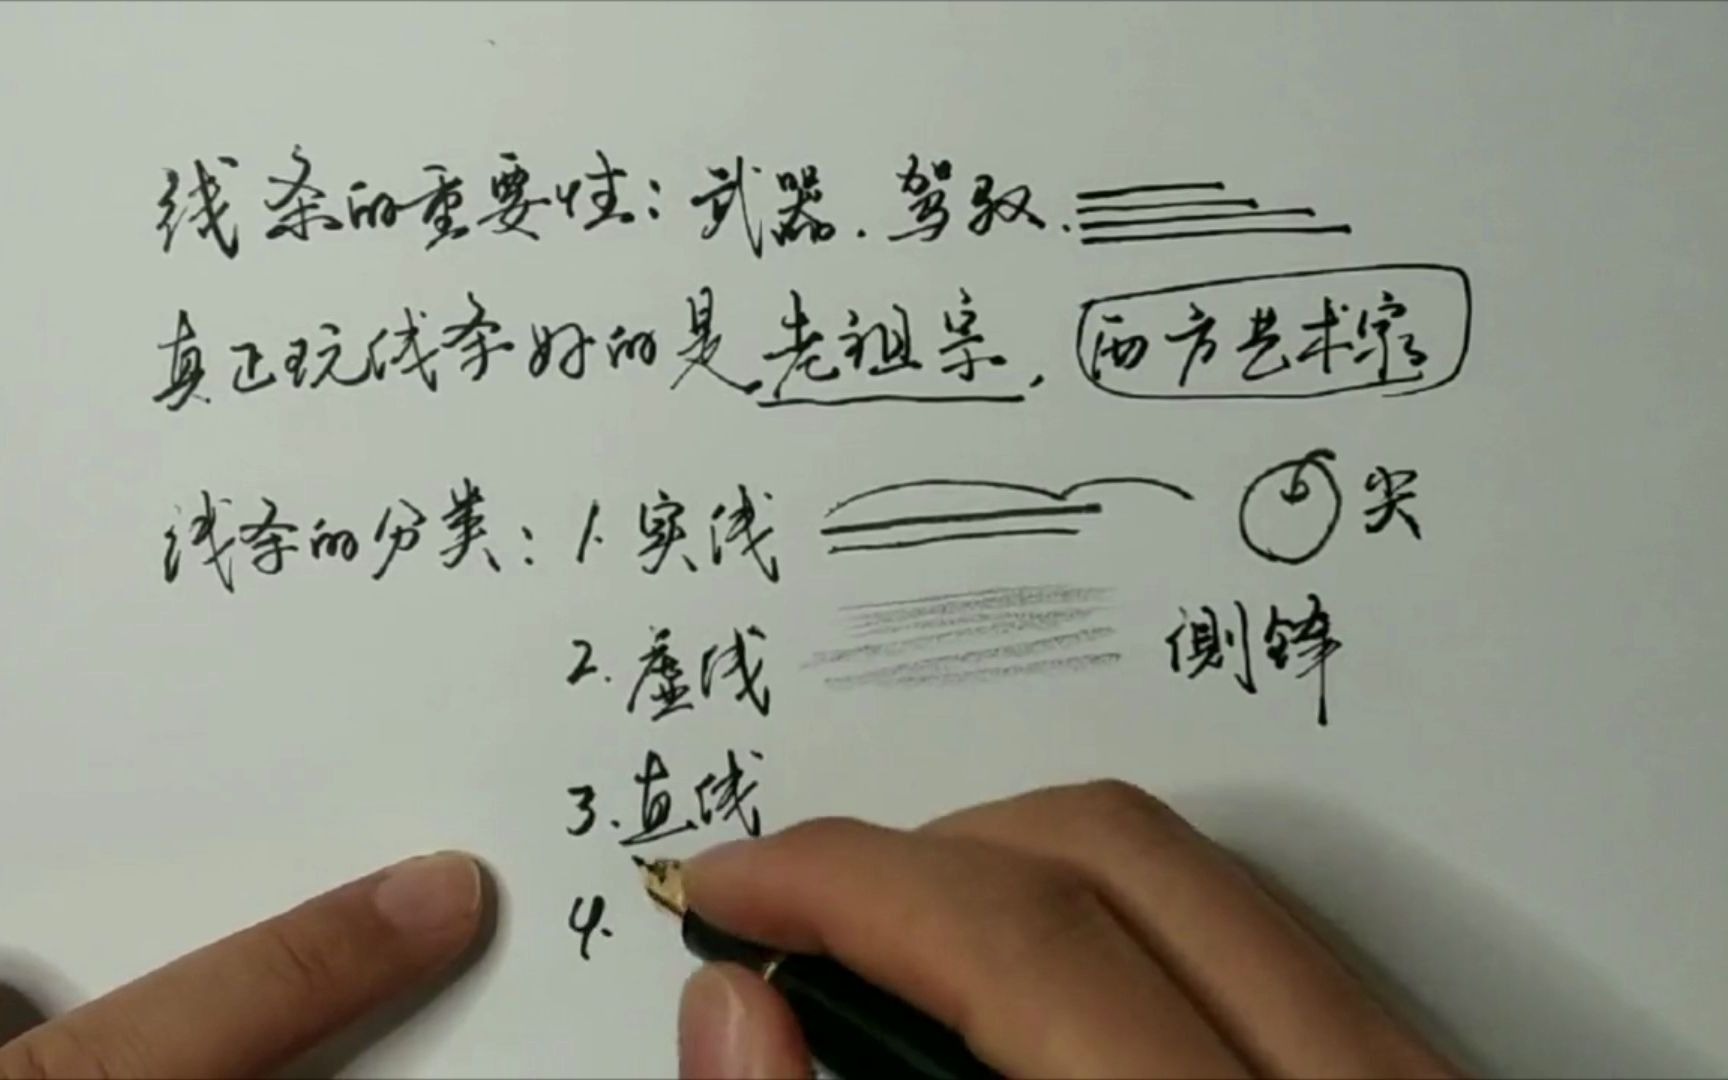 线条的重要性：武器.驾驭.
真正玩线条好的是老祖宗, 西方艺术家
线条的分类：1.实线 尖
2.虚线 侧锋
3.直线
4.